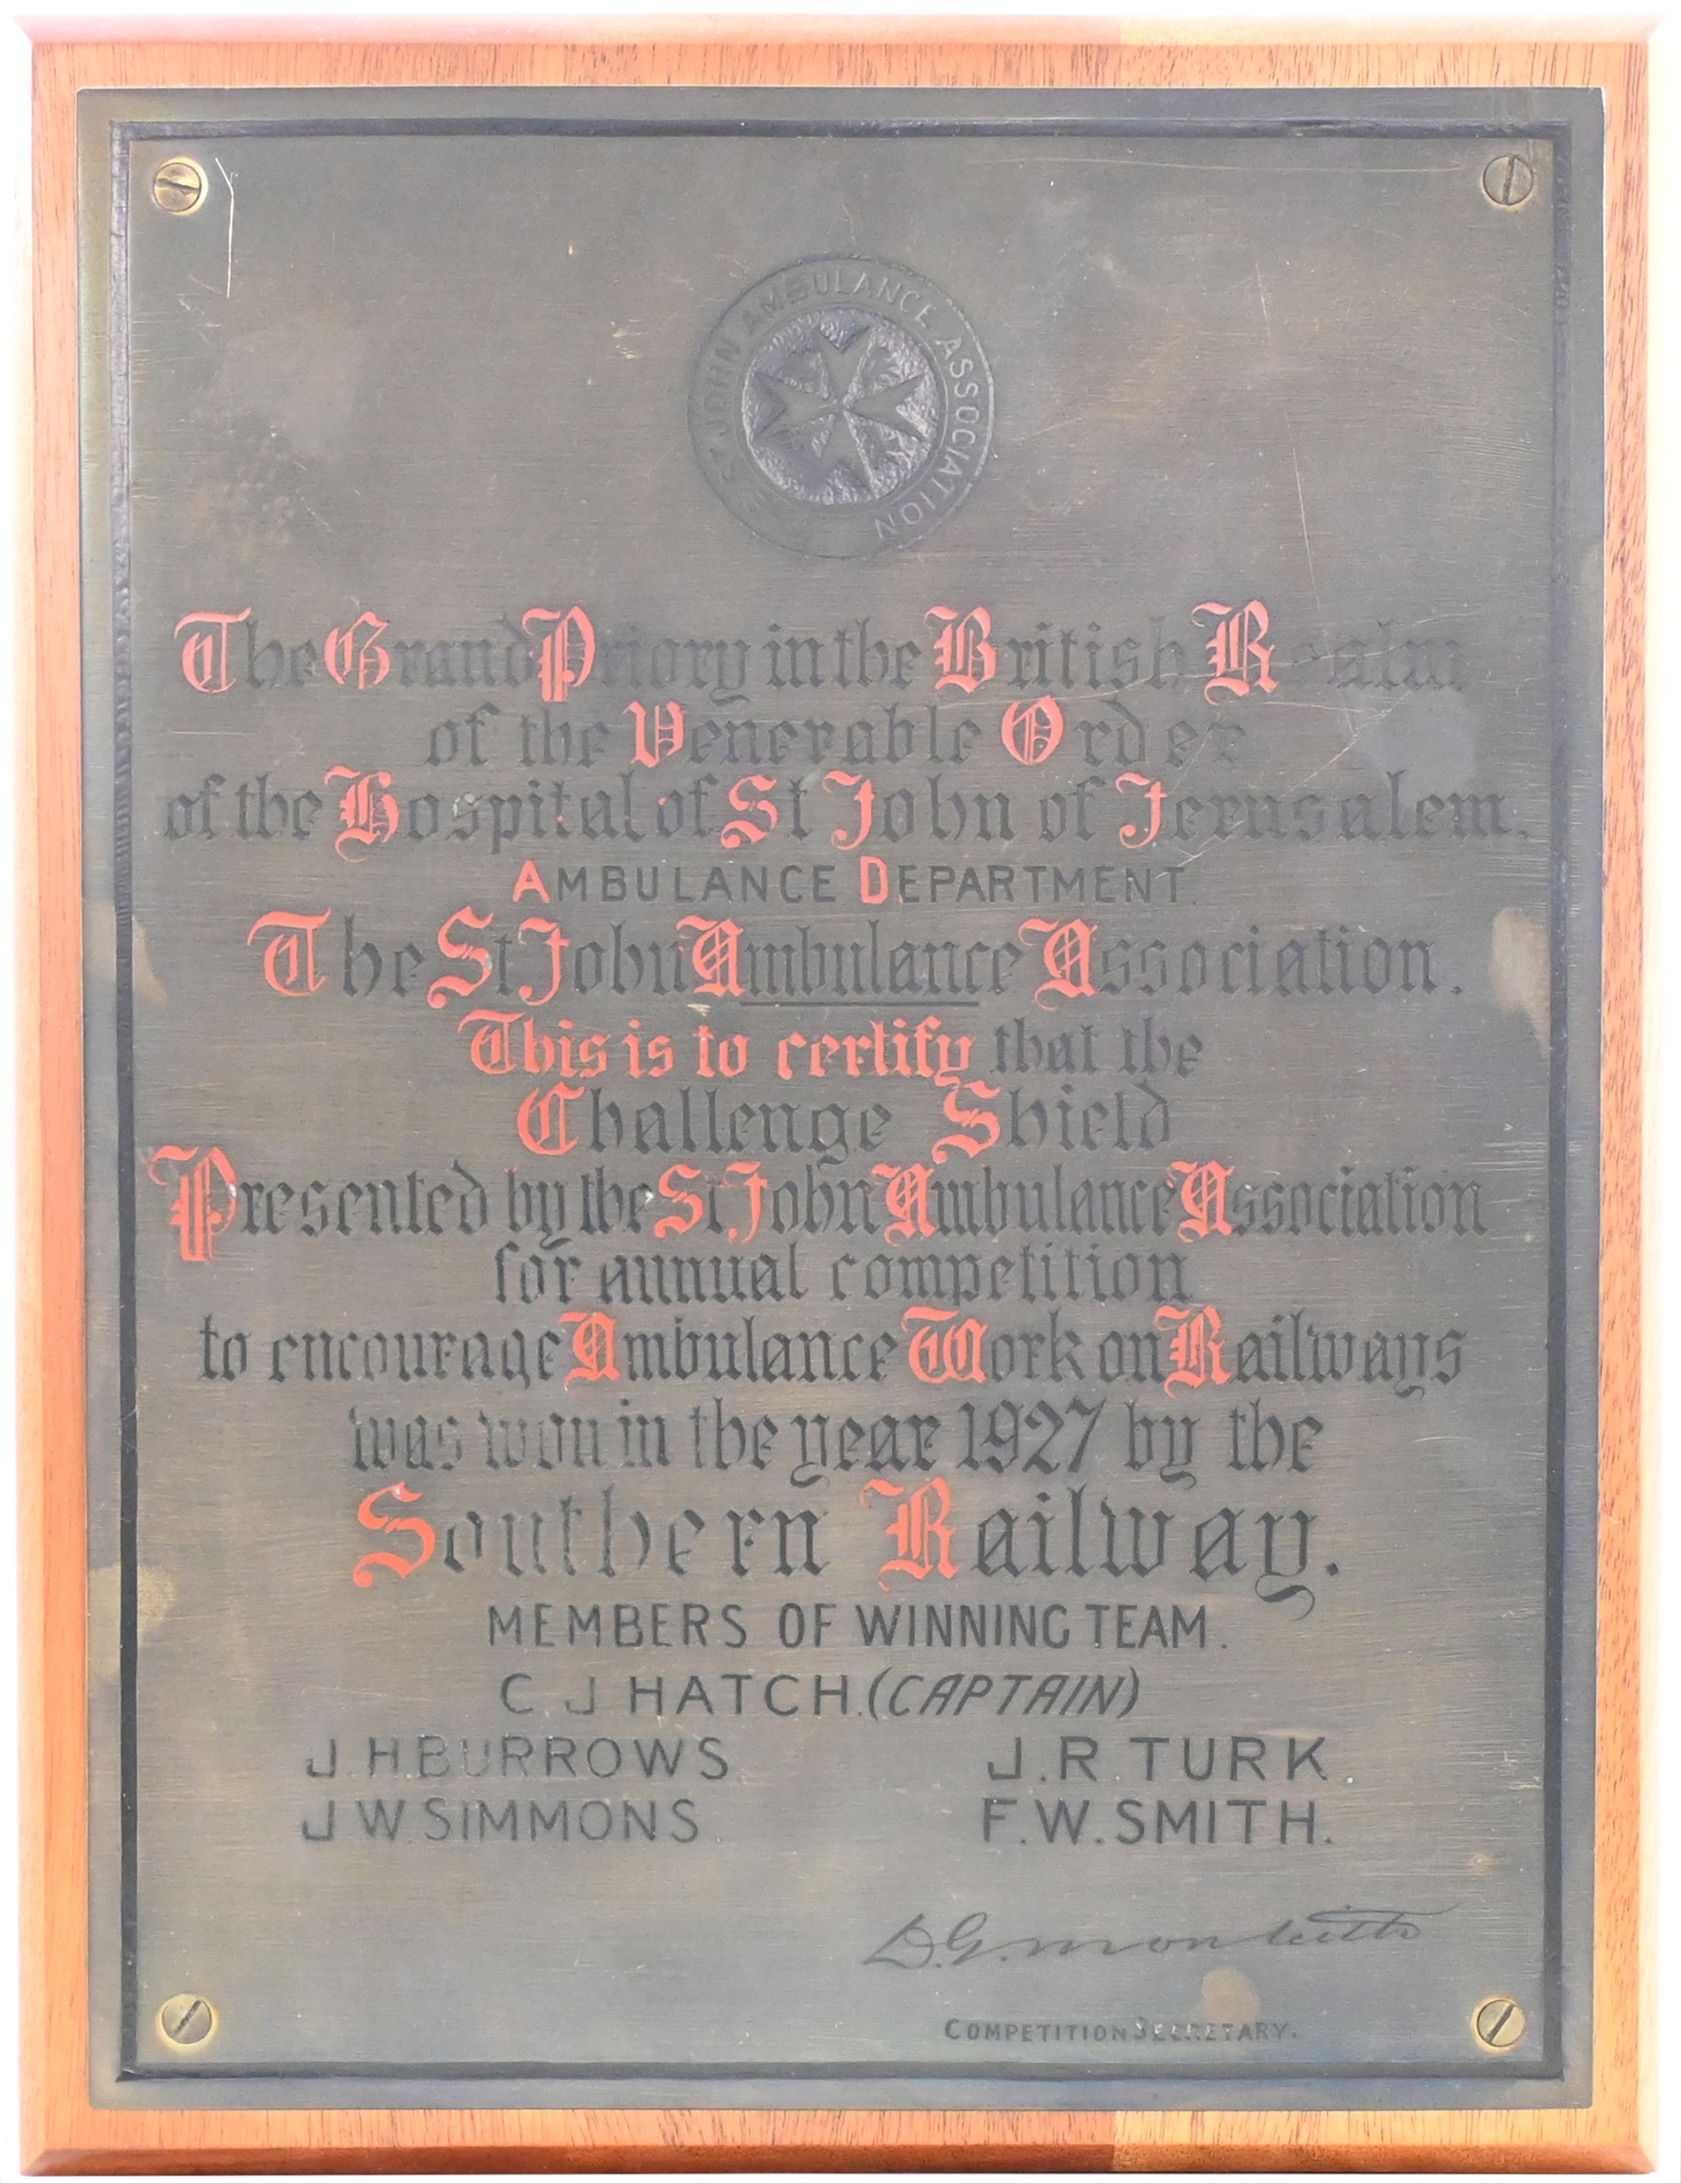 ST JOHN AMBULANCE ASSOCIATION
The Grand Priory in the British Realm
of the Venerable Order
of the Hospital of St John of Jerusalem.
AMBULANCE DEPARTMENT.
The St John Ambulance Association.
This is to certify that the
Challenge Shield
Presented by the St. John Ambulance Association
for annual competition
to encourage Ambulance Work on Railways
was won in the year 1927 by the
Southern Railway.
MEMBERS OF WINNING TEAM.
C. J HATCH. (CAPTAIN)
J. H. BURROWS
J. R. TURK.
J W SIMMONS
F. W. SMITH.
D. G. Monteith
COMPETITION SECRETARY.